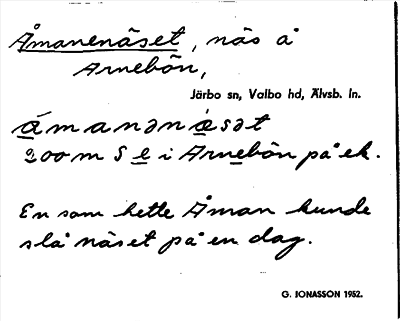 Åmanenäset, näs å
Arnebön,
Järbo sn, Valbo hd, Älvsb. ln.
åmanənäsət
200 m S e i Arnebön på ek.
En som hette Åman kunde
slå näset på en dag.
G. JONASSON 1952.